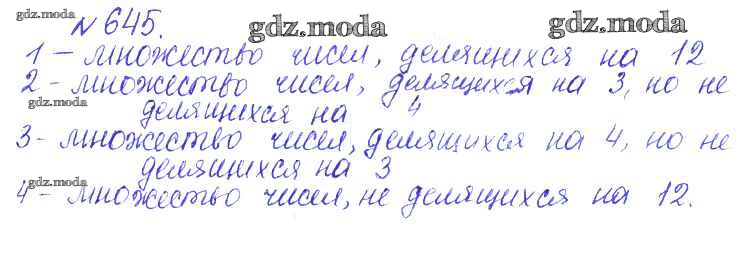 № 645.
gdz.moda gdz.moda
1 – множество чисел, делящихся на 12
2 - множество чисел, делящихся на 3, но не
gdz.moda
делящихся на 4
3 - множество чисел, делящихся на 4, но не
делящихся на 3
gdz.moda
4 - множество чисел, не делящихся на 12.
gdz.moda gdz.moda